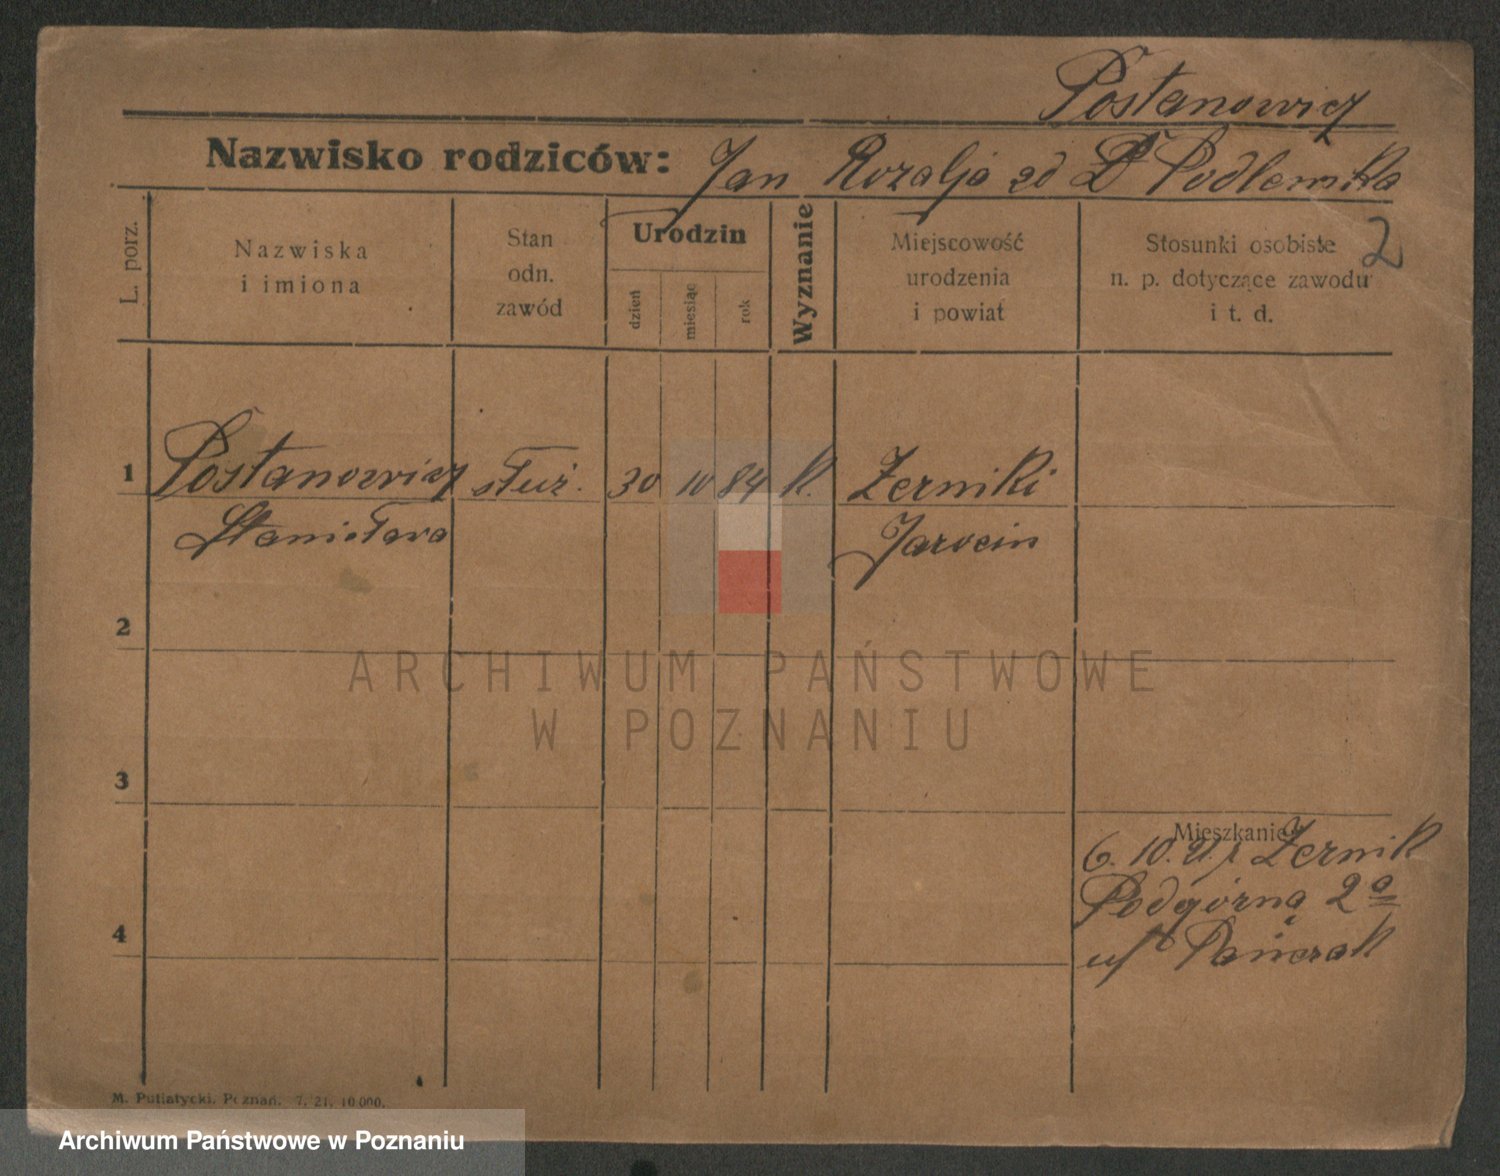 Postanowicz
Nazwisko rodziców: Jan Rozalja zd Podlemska
L. porz.
Nazwiska
i imiona
Stan
odn.
zawód
Urodzin
dzień
miesiąc
rok
Wyznanie
Miejscowość
urodzenia
i powiat
Stosunki osobiste
n. p. dotyczące zawodu
i t. d.
2
1 Postanowicz służ. 30 10 84 k. Żerniki
Stanisława Jarocin
2
ARCHIWUM PAŃSTWOWE
W POZNANIU
3
Mieszkanie:
6. 10. 21. Żernik
Podgórna 2a
4
u/ Pańczak
M. Putiatycki. Poznań. 7. 21. 10.000.
Archiwum Państwowe w Poznaniu